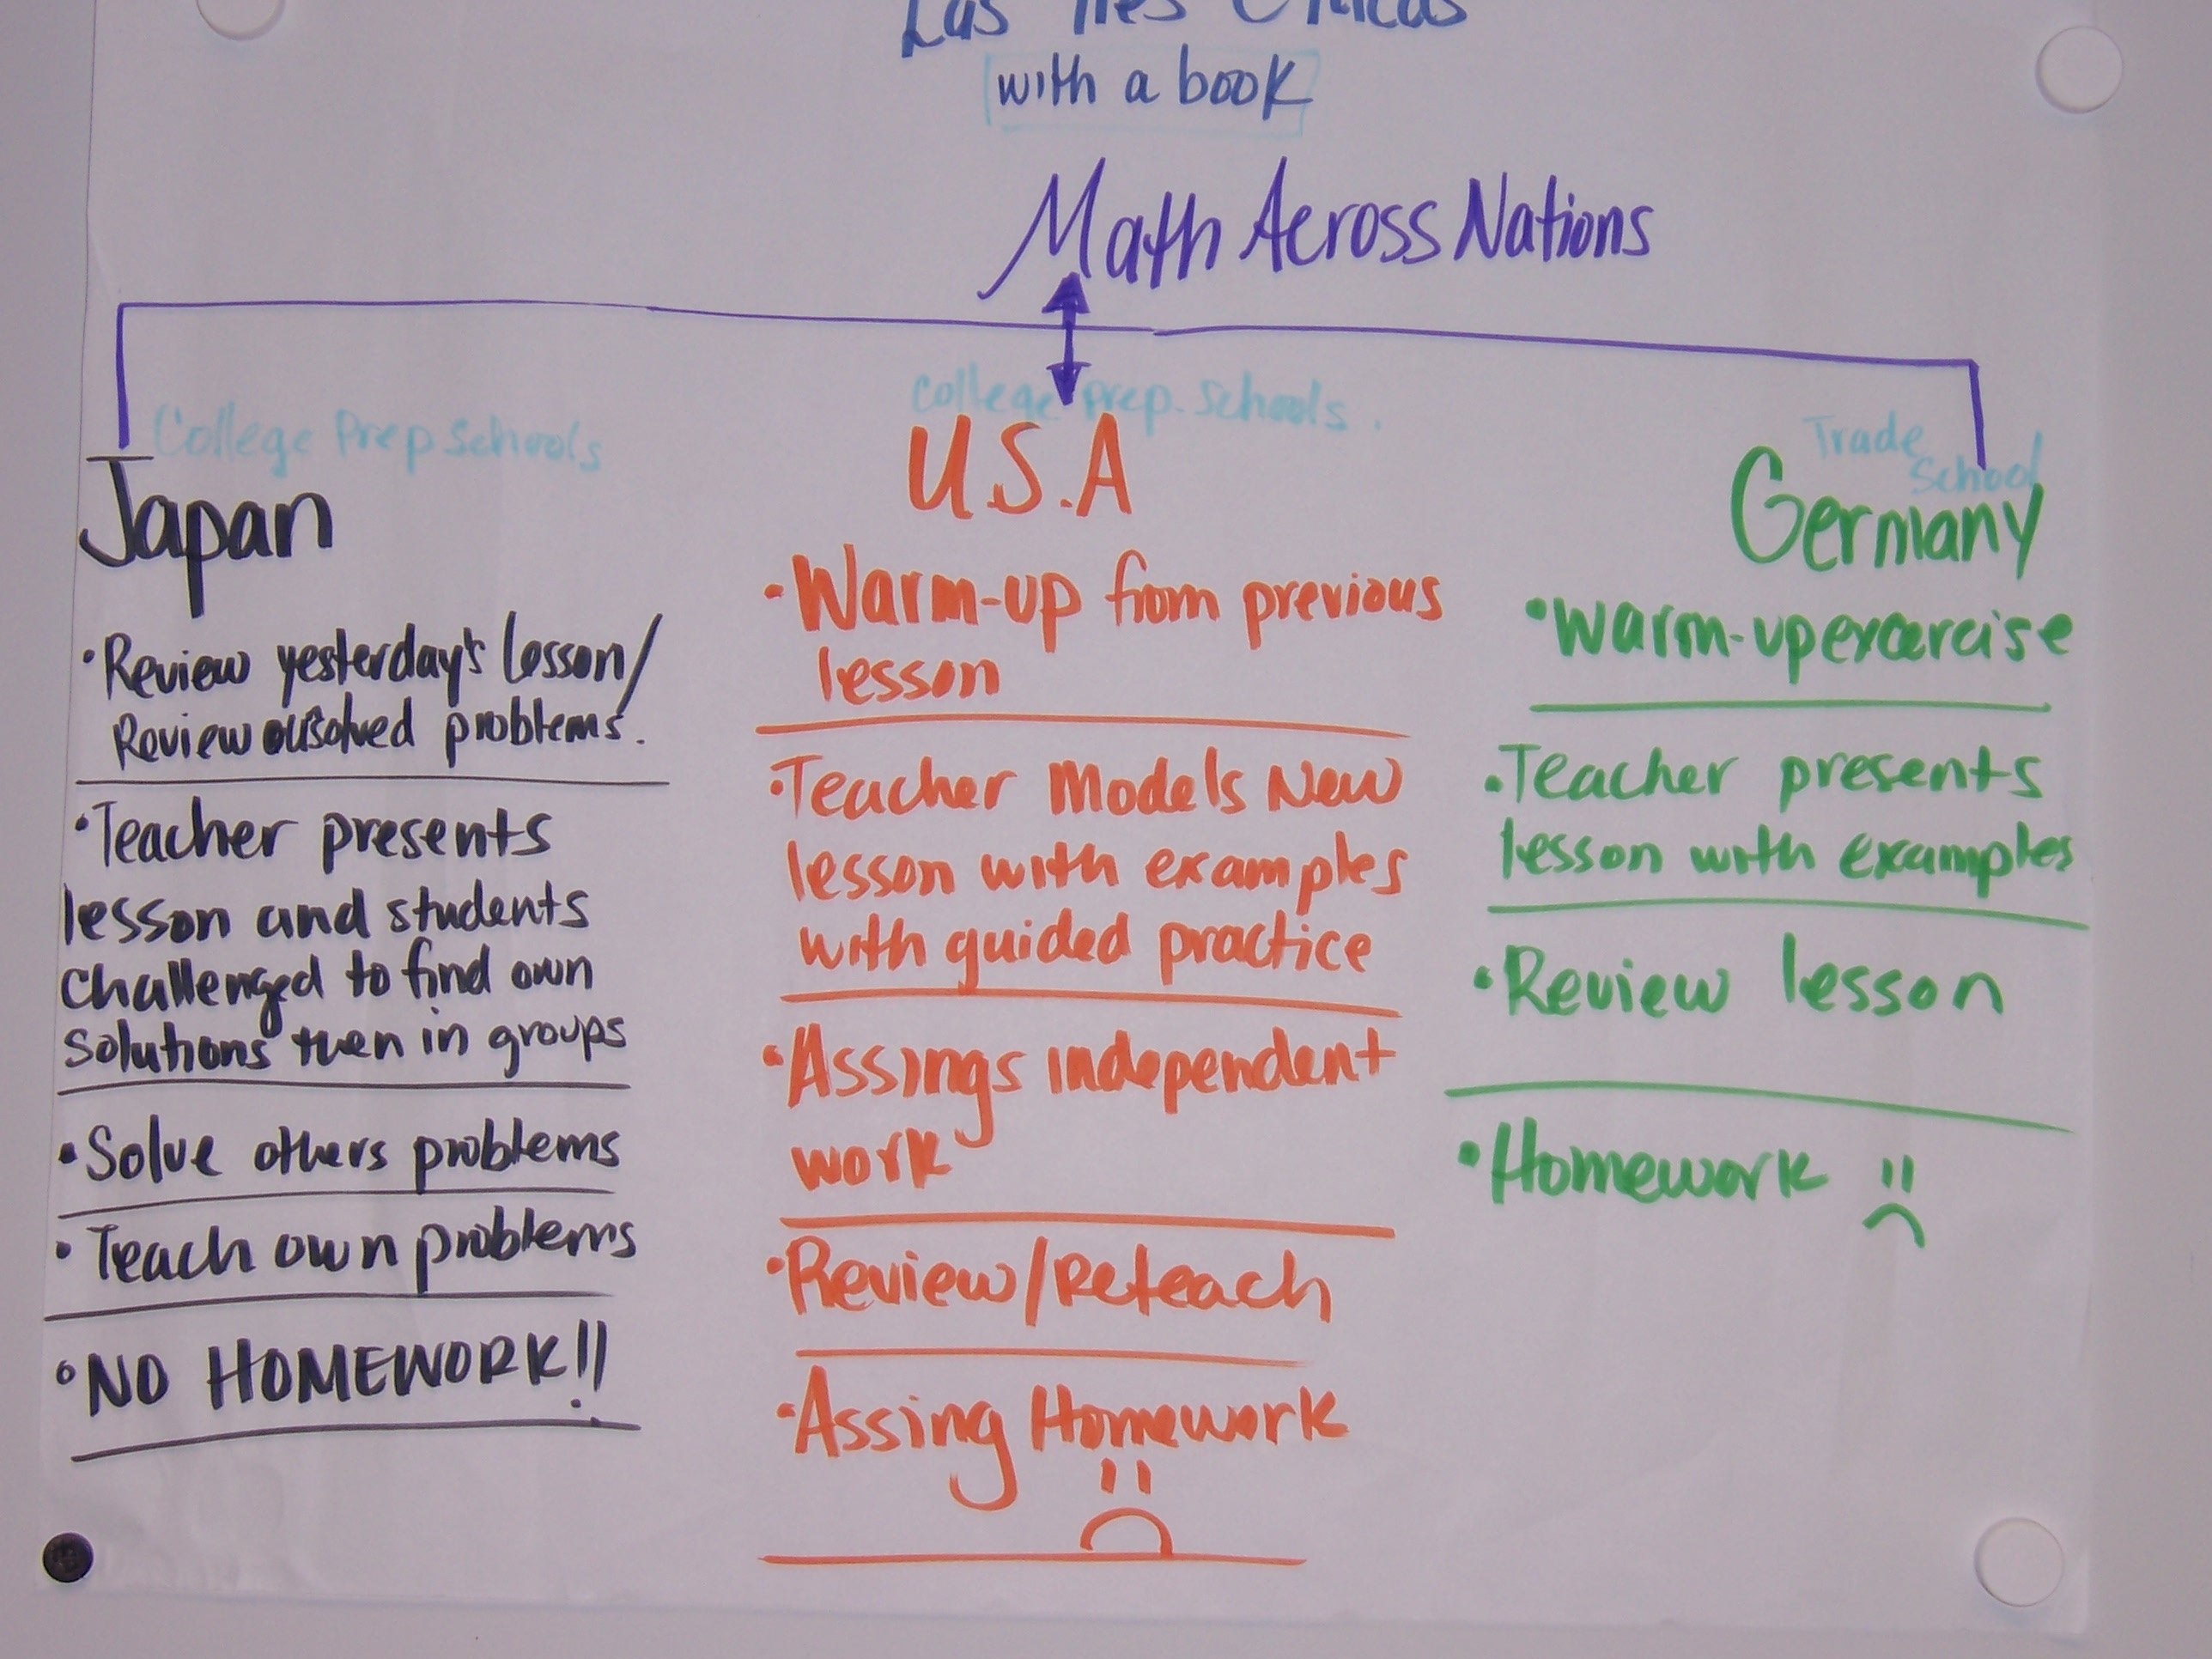 Las Tres Chicas
with a book
Math Across Nations
College Prep Schools
Japan
• Review yesterday's lesson/
Review unsolved problems.
• Teacher presents
lesson and students
challenged to find own
solutions then in groups
• Solve others problems
• Teach own problems
• NO HOMEWORK!!
College prep. Schools.
U.S.A
• Warm-up from previous
lesson
• Teacher Models New
lesson with examples
with guided practice
• Assings independent
work
• Review/Reteach
• Assing Homework
Trade
School
Germany
• Warm-up excercise
• Teacher presents
lesson with examples
• Review lesson
• Homework